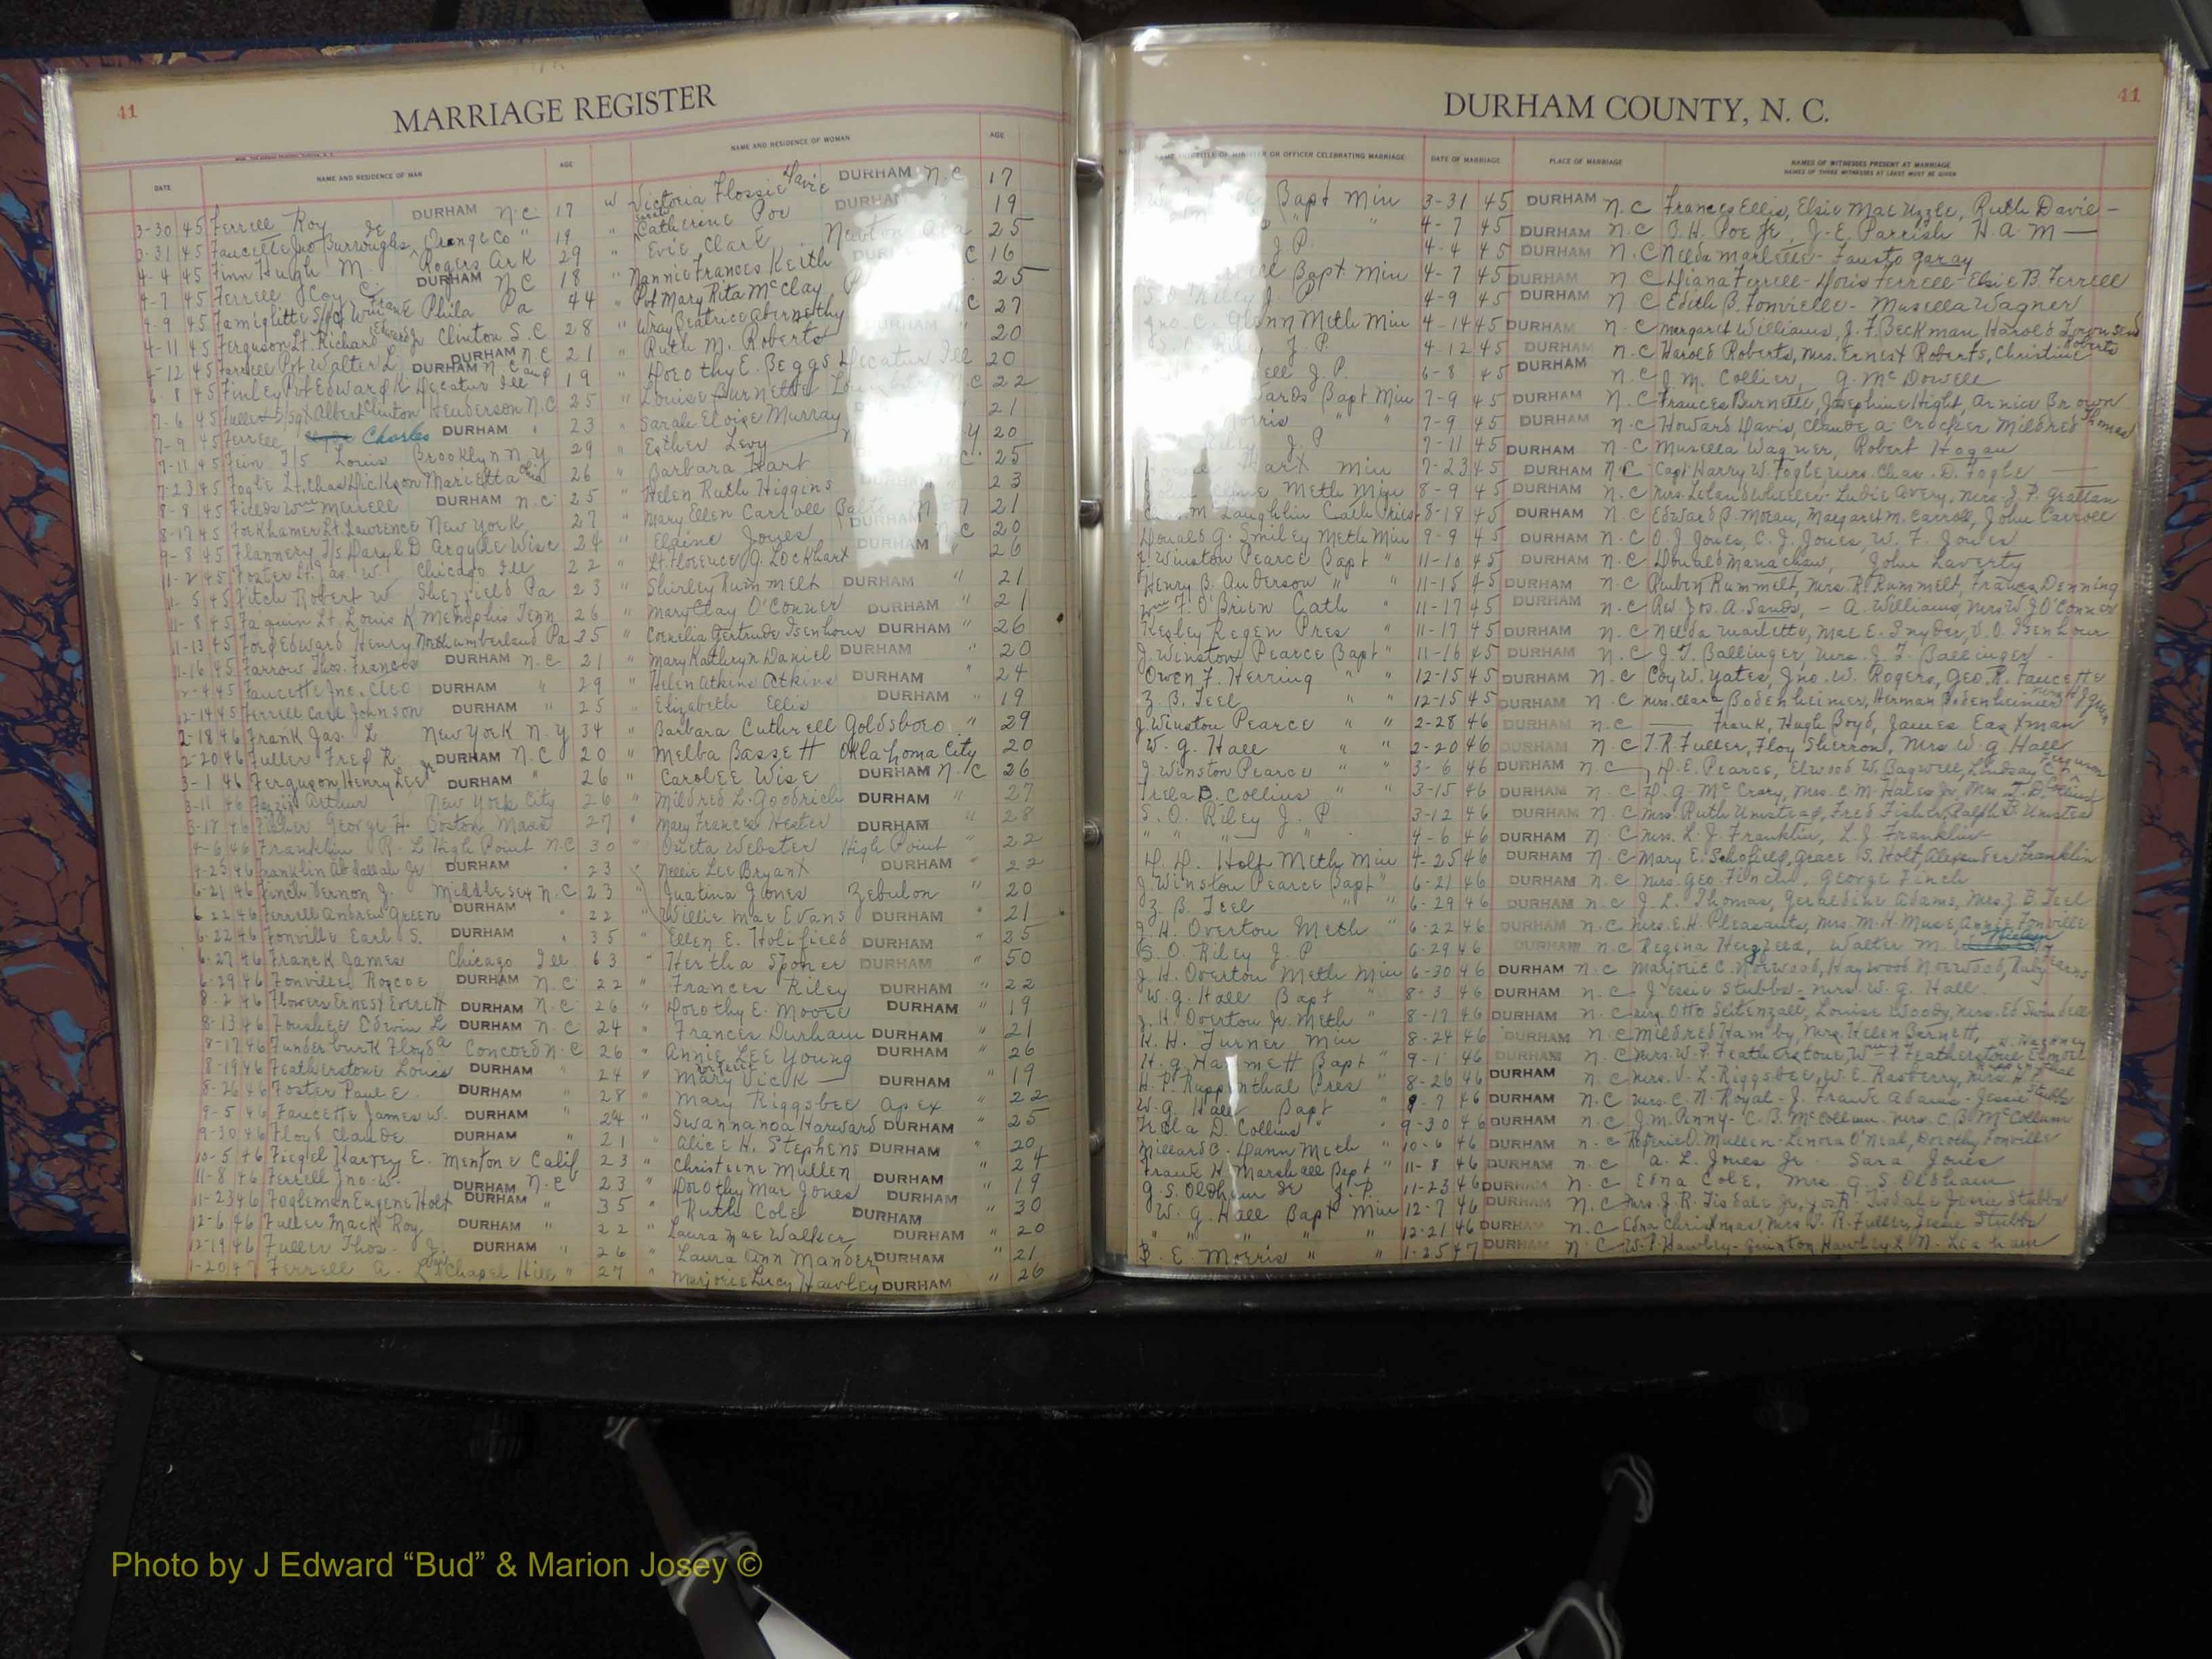 41
MARRIAGE REGISTER
DATE NAME AND RESIDENCE OF MAN AGE NAME AND RESIDENCE OF WOMAN AGE
3-30 45 Ferrell Roy Jr DURHAM N.C. 17 W Victoria Flossie Davie DURHAM N.C 17
3-31 45 Faucette Jno Burroughs Orange Co " 19 " Catherine Poe DURHAM 19
4-4 45 Finn Hugh M. Rogers Ark 29 " Evie Clark Newton 25
4-7 45 Ferrell Coy C. DURHAM N C 18 " Nannie Frances Keith C 16
4-9 45 Famiglitte Frank Phila Pa 44 " Pvt Mary Rita McClay 25
4-11 45 Ferguson Lt. Richard Edward Jr Clinton S.C 28 " Wray Beatrice Abernethy N C 27
4-12 45 Ferrell Pvt Walter L DURHAM N C 21 " Ruth M. Roberts 20
6-8 45 Finley Pvt Edward K Decatur Ill 19 " Dorothy E. Beggs Decatur Ill 20
7-6 45 Fuller S/Sgt Albert Clinton Henderson N.C 25 " Louise Burnette N C 22
7-9 45 Ferrell Charles DURHAM 23 " Sarah Eloise Murray 21
7-11 45 Fein T/5 Louis Brooklyn N Y 29 " Esther Levy Y 20
7-23 45 Fogle Lt. Chas Dickson Marietta Ohio 26 " Barbara Hart C. 25
8-8 45 Fields Wm Merrell DURHAM N.C. 25 " Helen Ruth Higgins 23
8-17 45 Fockhamer Lt Lawrence New York 27 " Mary Ellen Carroll Balto 21
9-8 45 Flannery T/5 Daryl D Argyle Wisc 24 " Elaine Jones DURHAM N C 20
11-2 45 Foster Lt. Jas. W. Chicago Ill 22 " Lt. Florence A. Lockhart DURHAM " 26
11-5 45 Fitch Robert W Sheffield Pa 23 " Shirley Rummelt DURHAM " 21
11-8 45 Faquin Lt. Louis K Memphis Tenn 26 " Mary Clay O'Conner DURHAM " 21
11-13 45 Ford Edward Henry Northumberland Pa 35 " Cornelia Gertrude Isenhour DURHAM " 26
11-16 45 Farrow Thos. Francis DURHAM N.C 21 " Mary Kathryn Daniel DURHAM " 20
12-4 45 Faucette Jno. Cleo DURHAM " 29 " Helen Atkins Atkins DURHAM " 24
12-14 45 Ferrell Carl Johnson DURHAM " 25 " Elizabeth Ellis DURHAM " 19
2-18 46 Frank Jas. L New York N.Y 34 " Barbara Cuthrell Goldsboro " 29
2-20 46 Fuller Fred R DURHAM N.C 20 " Melba Bassett Oklahoma City 20
3-1 46 Ferguson Henry Lee Jr DURHAM " 26 " Carolee Wise DURHAM N.C 26
3-11 46 Arthur New York City 26 " Mildred L. Goodrich DURHAM " 27
3-12 46 Fisher George H. Boston Mass 27 " Mary Frances Hester DURHAM " 28
4-6 46 Franklin R. L High Point N C 30 " Osieta Webster High Point " 22
4-25 46 Franklin Abdallah Jr DURHAM " 23 " Nellie Lee Bryant DURHAM " 22
6-21 46 Finch Vernon J. Middlesex N.C 23 " Juatina Jones Zebulon " 20
6-22 46 Ferrell Andrew Green DURHAM " 22 " Willie Mae Evans DURHAM " 21
6-22 46 Fonville Earl S. DURHAM " 35 " Ellen E. Holifield DURHAM " 35
6-27 46 Franck James Chicago Ill 63 " Hertha Sponer DURHAM " 50
6-29 46 Fonville Roscoe DURHAM N.C. 22 " Frances Riley DURHAM " 22
8-2 46 Flowers Ernest Everett DURHAM N.C. 26 " Dorothy E. Moore DURHAM " 19
8-13 46 Foushee Edwin L DURHAM N.C 24 " Frances Durham DURHAM " 21
8-17 46 Funderburk Floyd A Concord N.C 26 " Annie Lee Young DURHAM " 26
8-19 46 Featherstone Louis DURHAM " 24 " Mary Vick DURHAM " 19
8-26 46 Foster Paul E. DURHAM " 28 " Mary Riggsbee Apex " 22
9-5 46 Faucette James W. DURHAM " 24 " Swannanoa Harward DURHAM " 25
9-30 46 Floyd Claude DURHAM " 21 " Alice H. Stephens DURHAM " 20
10-5 46 Fiegel Harvey E. Mentone Calif 23 " Christeene Mullen DURHAM " 24
11-8 46 Ferrell Jno. W. DURHAM N.C 23 " Dorothy Mae Jones DURHAM " 19
11-23 46 Fogleman Eugene Holt DURHAM " 35 " Ruth Cole DURHAM " 30
12-6 46 Fuller Mack Roy DURHAM " 22 " Laura Mae Walker DURHAM " 20
12-19 46 Fuller Thos. J. DURHAM " 26 " Laura Ann Mander DURHAM " 21
1-20 47 Ferrell A. Chapel Hill " 27 " Marjorie Lucy Hawley DURHAM " 26
41
DURHAM COUNTY, N. C.
OR OFFICER CELEBRATING MARRIAGE DATE OF MARRIAGE PLACE OF MARRIAGE NAMES OF WITNESSES PRESENT AT MARRIAGE
NAMES OF THREE WITNESSES AT LEAST MUST BE GIVEN
Bapt Min 3-31 45 DURHAM N.C Frances Ellis, Elsie Mae Uzzle, Ruth Davie
4-7 45 DURHAM N.C B. H. Poe Jr, J. E. Parrish H. A. M
J P. 4-4 45 DURHAM N.C Nelda Marlette - Fausto Garay
Bapt Min 4-7 45 DURHAM N C Diana Ferrell - Doris Ferrell - Elsie B. Ferrell
Riley J. P 4-9 45 DURHAM N C Edith B. Fonvielle - Musella Wagner
Jno. C. Glenn Meth Min 4-14 45 DURHAM N.C Margaret Williams, J. F. Beckman Harold Townsend
J. P. 4-12 45 DURHAM N.C Harold Roberts, Mrs. Ernest Roberts, Christine Roberts
J. P. 6-8 45 DURHAM N.C J. M. Collier, G. McDowell
Bapt Min 7-9 45 DURHAM N.C Frances Burnette, Josephine Hight, Arnice Brown
7-9 45 DURHAM N.C Howard Davis, Claude A. Crocker Mildred Thomas
J. P 7-11 45 DURHAM N.C Musella Wagner, Robert Hogan
Hart Min 7-23 45 DURHAM N.C Capt. Harry W. Fogle, Mrs. Chas. D. Fogle
Cline Meth Min 8-9 45 DURHAM N.C Mrs. Leland Wheeler - Ludie Avery, Mrs. J. P. Grattan
Laughlin Cath Priest 8-18 45 DURHAM N.C Edward B. Moran, Margaret M. Carroll, John Carroll
Donald G. Smiley Meth Min 9-9 45 DURHAM N.C O. J. Jones, C. J. Jones, W. F. Jones
J. Winston Pearce Bapt " 11-10 45 DURHAM N.C Donald Manachau, John Laverty
Henry B. Anderson " " 11-15 45 DURHAM N.C Ruben Rummelt, Mrs. R. Rummelt, Frances Denning
Wm F. O'Brien Cath " 11-17 45 DURHAM N.C Rev. Jos. A. Sands, - A. Williams, Mrs W. J. O'Conner
Kelsey Regen Pres " 11-17 45 DURHAM N.C Nelda Marlette, Mae E. Snyder, D. O. Isenhour
J. Winston Pearce Bapt " 11-16 45 DURHAM N.C J. T. Ballinger, Mrs. J. T. Ballinger
Owen F. Herring " " 12-15 45 DURHAM N.C Coy W. Yates, Jno. W. Rogers, Geo. R. Faucette
Z. B. Teel " " 12-15 45 DURHAM N.C Mrs. Clara Bodenheimer, Herman Bodenheimer
J Winston Pearce " " 2-28 46 DURHAM N.C Frank, Hugh Boyd, James Eastman
W. G. Hall " " 2-20 46 DURHAM N.C T. R. Fuller, Floy Sherron, Mrs W. G Hall
J Winston Pearce " " 3-6 46 DURHAM N.C D. E. Pearce, Elwood W. Bagwell, Lindsay Ferguson
Trela D. Collins " " 3-15 46 DURHAM N.C D. G. McCrary, Mrs. C. M. Hales Jr, Mrs. T. D. Collins
S. O. Riley J. P 3-12 46 DURHAM N.C Mrs. Ruth Umstead, Fred Fisher, Ralph B. Umstead
" " " 4-6 46 DURHAM N.C Mrs. L. J. Franklin, L. J. Franklin
D. D. Holt Meth Min 4-25 46 DURHAM N.C Mary E. Schofield, Grace S. Holt, Alexander Franklin
J. Winston Pearce Bapt " 6-21 46 DURHAM N.C Mrs. Geo. Finch, George Finch
Z. B. Teel " 6-29 46 DURHAM N.C J. L. Thomas, Geraldine Adams, Mrs. Z. B. Teel
J. H. Overton Meth " 6-22 46 DURHAM N.C Mrs. E. H. Pleasants, Mrs. M. H. Muse, Annie Fonville
S. O. Riley J. P 6-29 46 DURHAM N.C Regina Herzfeld, Walter M. Nielsen
J. H. Overton Meth Min 6-30 46 DURHAM N.C Marjorie C. Norwood, Haywood Norwood, Ruby Fearns
W. G. Hall Bapt " 8-3 46 DURHAM N.C Jessie Stubbs - Mrs. W. G. Hall
J. H. Overton Jr. Meth " 8-17 46 DURHAM N.C Mrs. Otto Seitenzall, Louise Woody, Mrs. Ed Swindell
H. H. Turner Min 8-24 46 DURHAM N.C Mildred Hamby, Mrs. Helen Barnett,
H. G. Hammett Bapt " 9-1 46 DURHAM N.C Mrs. W. F. Featherstone, Wm F Featherstone Elmore
H. P. Ruppenthal Pres " 8-26 46 DURHAM N.C Mrs. V. L. Riggsbee, W. E. Rasberry, Mrs. H. P. Ruppenthal
W. G. Hall Bapt " 9-7 46 DURHAM N.C Mrs. C. N. Royal - J. Frank Adams - Jessie Stubbs
Trela D. Collins " " 9-30 46 DURHAM N.C J. M. Penny - C. B. McCollum - Mrs. C. B. McCollum
Millard C. Dunn Meth " 10-6 46 DURHAM N.C Roderic D. Mullen - Lenora O'Neal, Dorothy Fonville
Frank H. Marshall Bapt " 11-8 46 DURHAM N.C A. L. Jones Jr Sara Jones
G. S. Oldham Jr J. P. 11-23 46 DURHAM N.C Edna Cole, Mrs. G. S. Oldham
W. G. Hall Bapt Min 12-7 46 DURHAM N.C Mrs. J. R. Tisdale Jr, Jos R. Tisdale Jessie Stubbs
" " " " 12-21 46 DURHAM N.C Edna Christmas, Mrs W. R. Fuller, Jessie Stubbs
B. E. Morris " " 1-25 47 DURHAM N.C W. P. Hawley - Quinton Hawley L. N. Leaham
Photo by J Edward “Bud” & Marion Josey ©